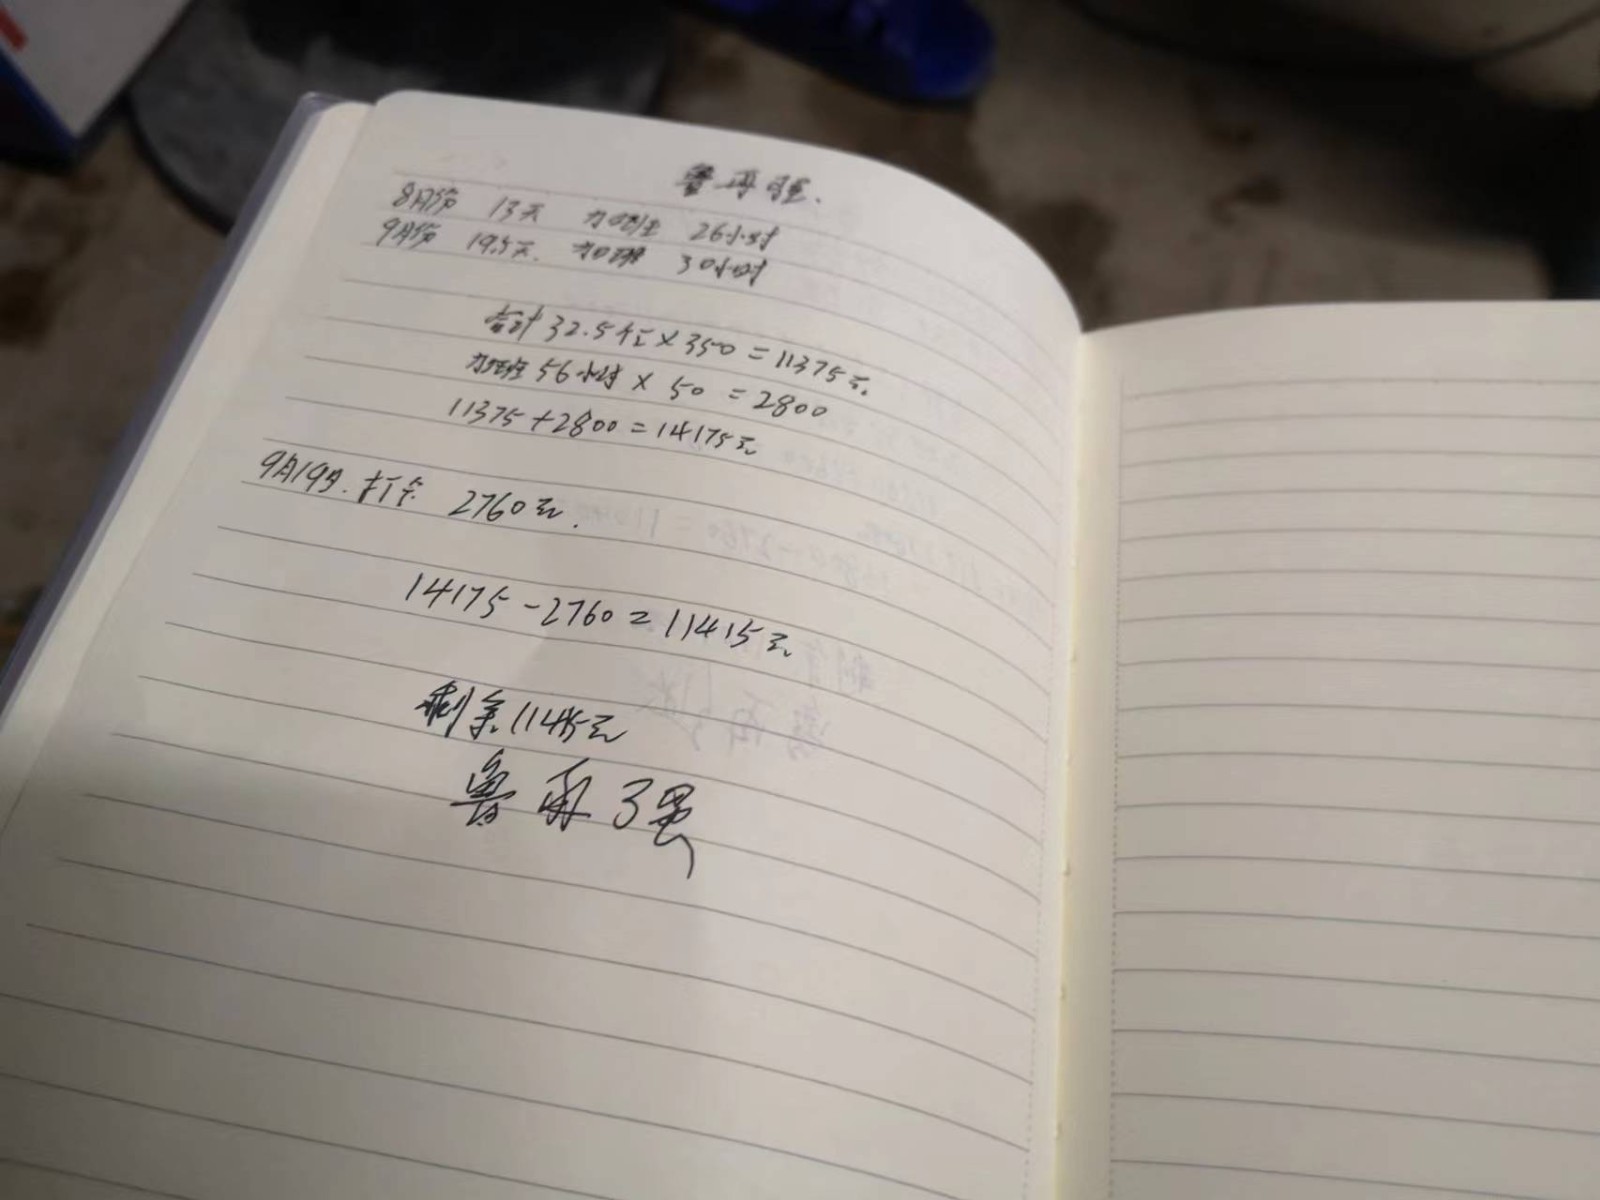 鲁再强.
8月份 13天 加班 26小时
9月份 19.5天. 加班 30小时
合计 32.5个工×350=11375元.
加班 56小时 × 50 =2800
11375+2800=14175元
9月19日. 打余 2760元.
14175-2760=11415元
剩余11415元
鲁再强